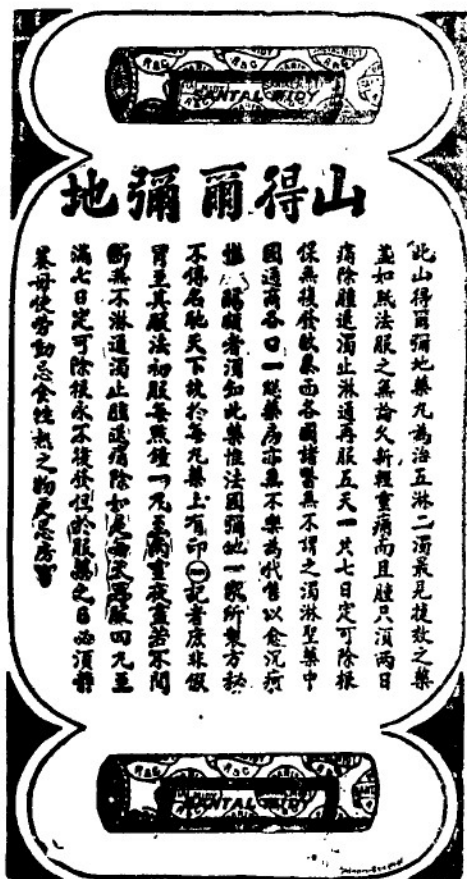 SANTAL MIDY
山得爾彌地
此山得爾彌地藥丸為治五淋二濁最見捷效之藥
盖如照法服之無論久新輕重痛而且腫只須兩日
痛除腫退濁止淋通再服五天一共七日定可除根
保無復發故泰西各國諸醫無不謂之濁淋聖藥中
國通商各口一總藥房亦無不樂為代售以愈沉疴
惟 顧者須知此藥惟法國彌地一家所製方秘
不傳名馳天下統於每丸藥上有印 記者庶非假
冒至其服法初服每點鐘一丸至兩晝夜盡若不間
斷無不淋通濁止腫退痛除如是每天再服四丸至
滿七日定可除根永不復發但於服藥之日必須靜
養毋使勞動忌食性熱之物更忌房事
SANTAL MIDY